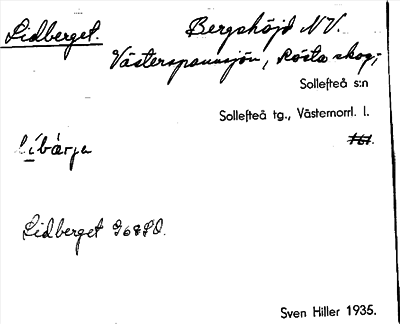 Lidberget. Bergshöjd NV.
Västerspannsjön, Rösta skog;
Sollefteå s:n
Sollefteå tg., Västernorrl. l.
lìbærja
161.
Lidberget 968SO.
Sven Hiller 1935.